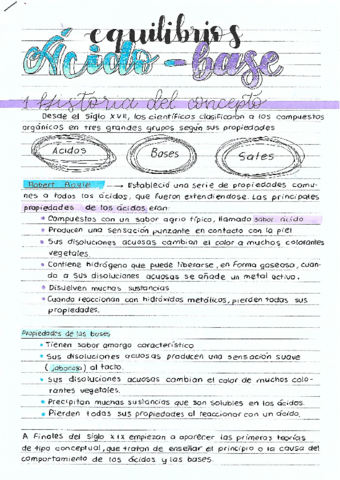 equilibrios
Ácido-base
1. Historia del concepto
Desde el siglo XVII, los científicos clasificaron a los compuestos
orgánicos en tres grandes grupos según sus propiedades
Ácidos Bases Sales
Robert Boyle → Estableció una serie de propiedades comu-
nes a todos los ácidos, que fueron extendiéndose. Las principales
propiedades de los ácidos eran:
Compuestos con un sabor agrio típico, llamado sabor ácido
Producen una sensación punzante en contacto con la piel
Sus disoluciones acuosas cambian el color a muchos colorantes
vegetales.
Contiene hidrógeno que puede liberarse, en forma gaseosa, cuan-
do a sus disoluciones acuosas se añade un metal activo.
Disuelven muchas sustancias
Cuando reaccionan con hidróxidos metálicos, pierden todas sus
propiedades.
Propiedades de las bases
Tienen sabor amargo característico
Sus disoluciones acuosas producen una sensación suave
(jabonosa) al tacto.
Sus disoluciones acuosas cambian el color de muchos colo-
rantes vegetales.
Precipitan muchas sustancias que son solubles en los ácidos.
Pierden todas sus propiedades al reaccionar con un ácido.
A finales del siglo XIX empiezan a aparecer las primeras teorías
de tipo conceptual, que tratan de enseñar el principio o la causa del
comportamiento de los ácidos y las bases.